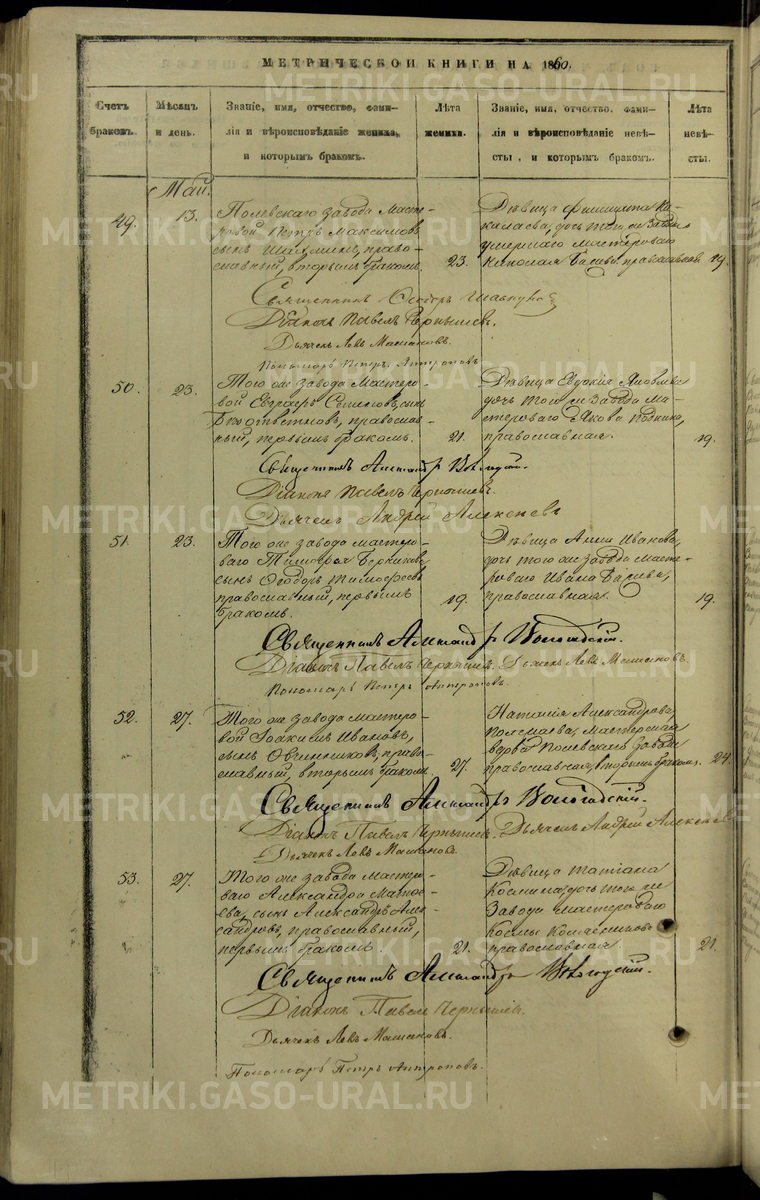 МЕТРИЧЕСКОЙ КНИГИ НА 1860.
Счетъ браковъ.
Мѣсяцъ и день.
Званіе, имя, отчество, фами-
лія и вѣроисповѣданіе жениха,
и которымъ бракомъ.
Лѣта жениха.
Званіе, имя, отчество, фами-
лія и вѣроисповѣданіе невѣ-
сты, и которымъ бракомъ.
Лѣта невѣ-
сты.
Май.
49.
13.
Полевскаго завода Масте-
ровой Петръ Максимовъ
сынъ право-
славный, вторымъ бракомъ.
23.
Дѣвица
дочь того же Завода
умершаго мастероваго
Николая православная
19.
Священникъ Ѳеодоръ
Діаконъ Павелъ Чернышевъ.
Дьячекъ Левъ
Пономарь Петръ Антроповъ
50.
23.
Того же завода Мастеро-
вой Евграфъ Семеновъ, сынъ
православ-
ный, первымъ бракомъ.
21.
Дѣвица Евдокія Яковлева
дочь того же Завода ма-
стероваго Якова
православная.
19.
Священникъ Александръ Вологодскій.
Діаконъ Павелъ Чернышевъ.
Дьячекъ Андрей Алексѣевъ
51.
23.
Того же завода мастеро-
ваго Тимоѳея
сынъ Ѳеодоръ Тимоѳеевъ
православный, первымъ
бракомъ.
19.
Дѣвица Анна Иванова,
дочь того же завода масте-
роваго Ивана
православная.
19.
Священникъ Александръ Вологодскій.
Діаконъ Павелъ Чернышевъ. Дьячекъ Левъ
Пономарь Петръ Антроповъ.
52.
27.
Того же завода мастеро-
вой Іоакимъ Ивановъ,
сынъ Овчинниковъ, право-
славный, вторымъ бракомъ.
27.
Наталія Александрова
мастерская
вдова Полевскаго Завода
православная, вторымъ бракомъ.
24.
Священникъ Александръ Вологодскій.
Діаконъ Павелъ Чернышевъ. Дьячекъ Андрей Алексѣевъ
Дьячекъ Левъ
53.
27.
Того же завода мастеро-
ваго Александра Матвѣ-
ева, сынъ Александръ Алек-
сандровъ, православный,
первымъ бракомъ.
21.
Дѣвица Татіана
Космина, дочь того же
Завода мастероваго
Космы
православная.
21.
Священникъ Александръ Вологодскій.
Діаконъ Павелъ Чернышевъ.
Дьячекъ Левъ
Пономарь Петръ Антроповъ.
METRIKI.GASO-URAL.RU